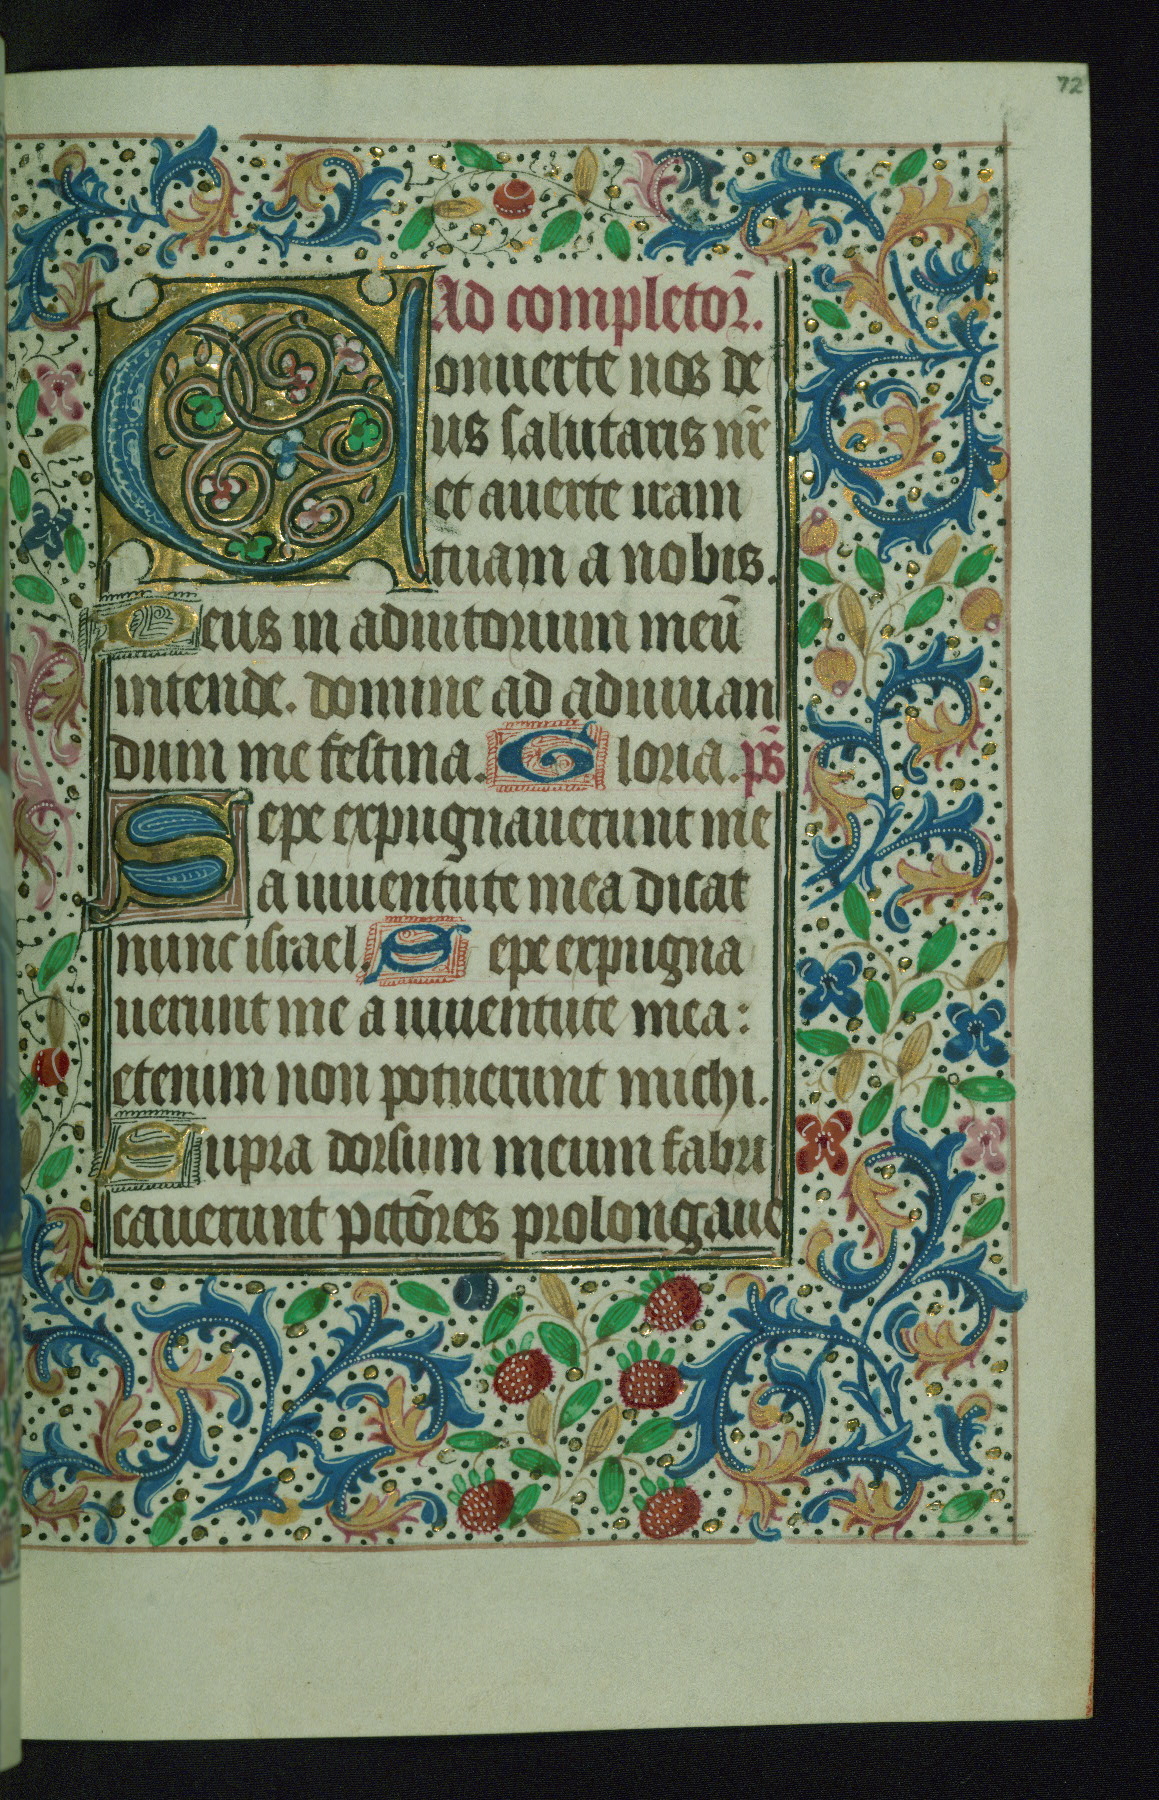 72
Ad completoꝝ̄.
Conuerte nos de
us salutaris nr̄
et auerte iram
tuam a nobis.
Deus in adiutorium meū
intende. domine ad adiuuan
dum me festina. Gloria. ps̄
Sepe expugnauerunt me
a iuuentute mea dicat
nunc israel. Sepe expugna
uerunt me a iuuentute mea:
etenim non potuerunt michi.
Supra dorsum meum fabri
cauerunt pctōres prolongaue